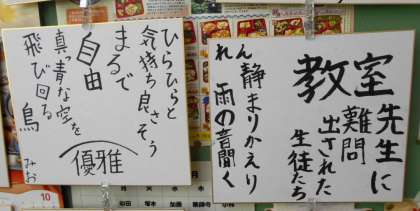 ひらひらと
気持ち良さそう
まるで
自由
真青な空を
飛び回る鳥
みお
優雅
教室
先生に
難問
出された
生徒たち
静まりかえり
雨の音聞く
れん
10